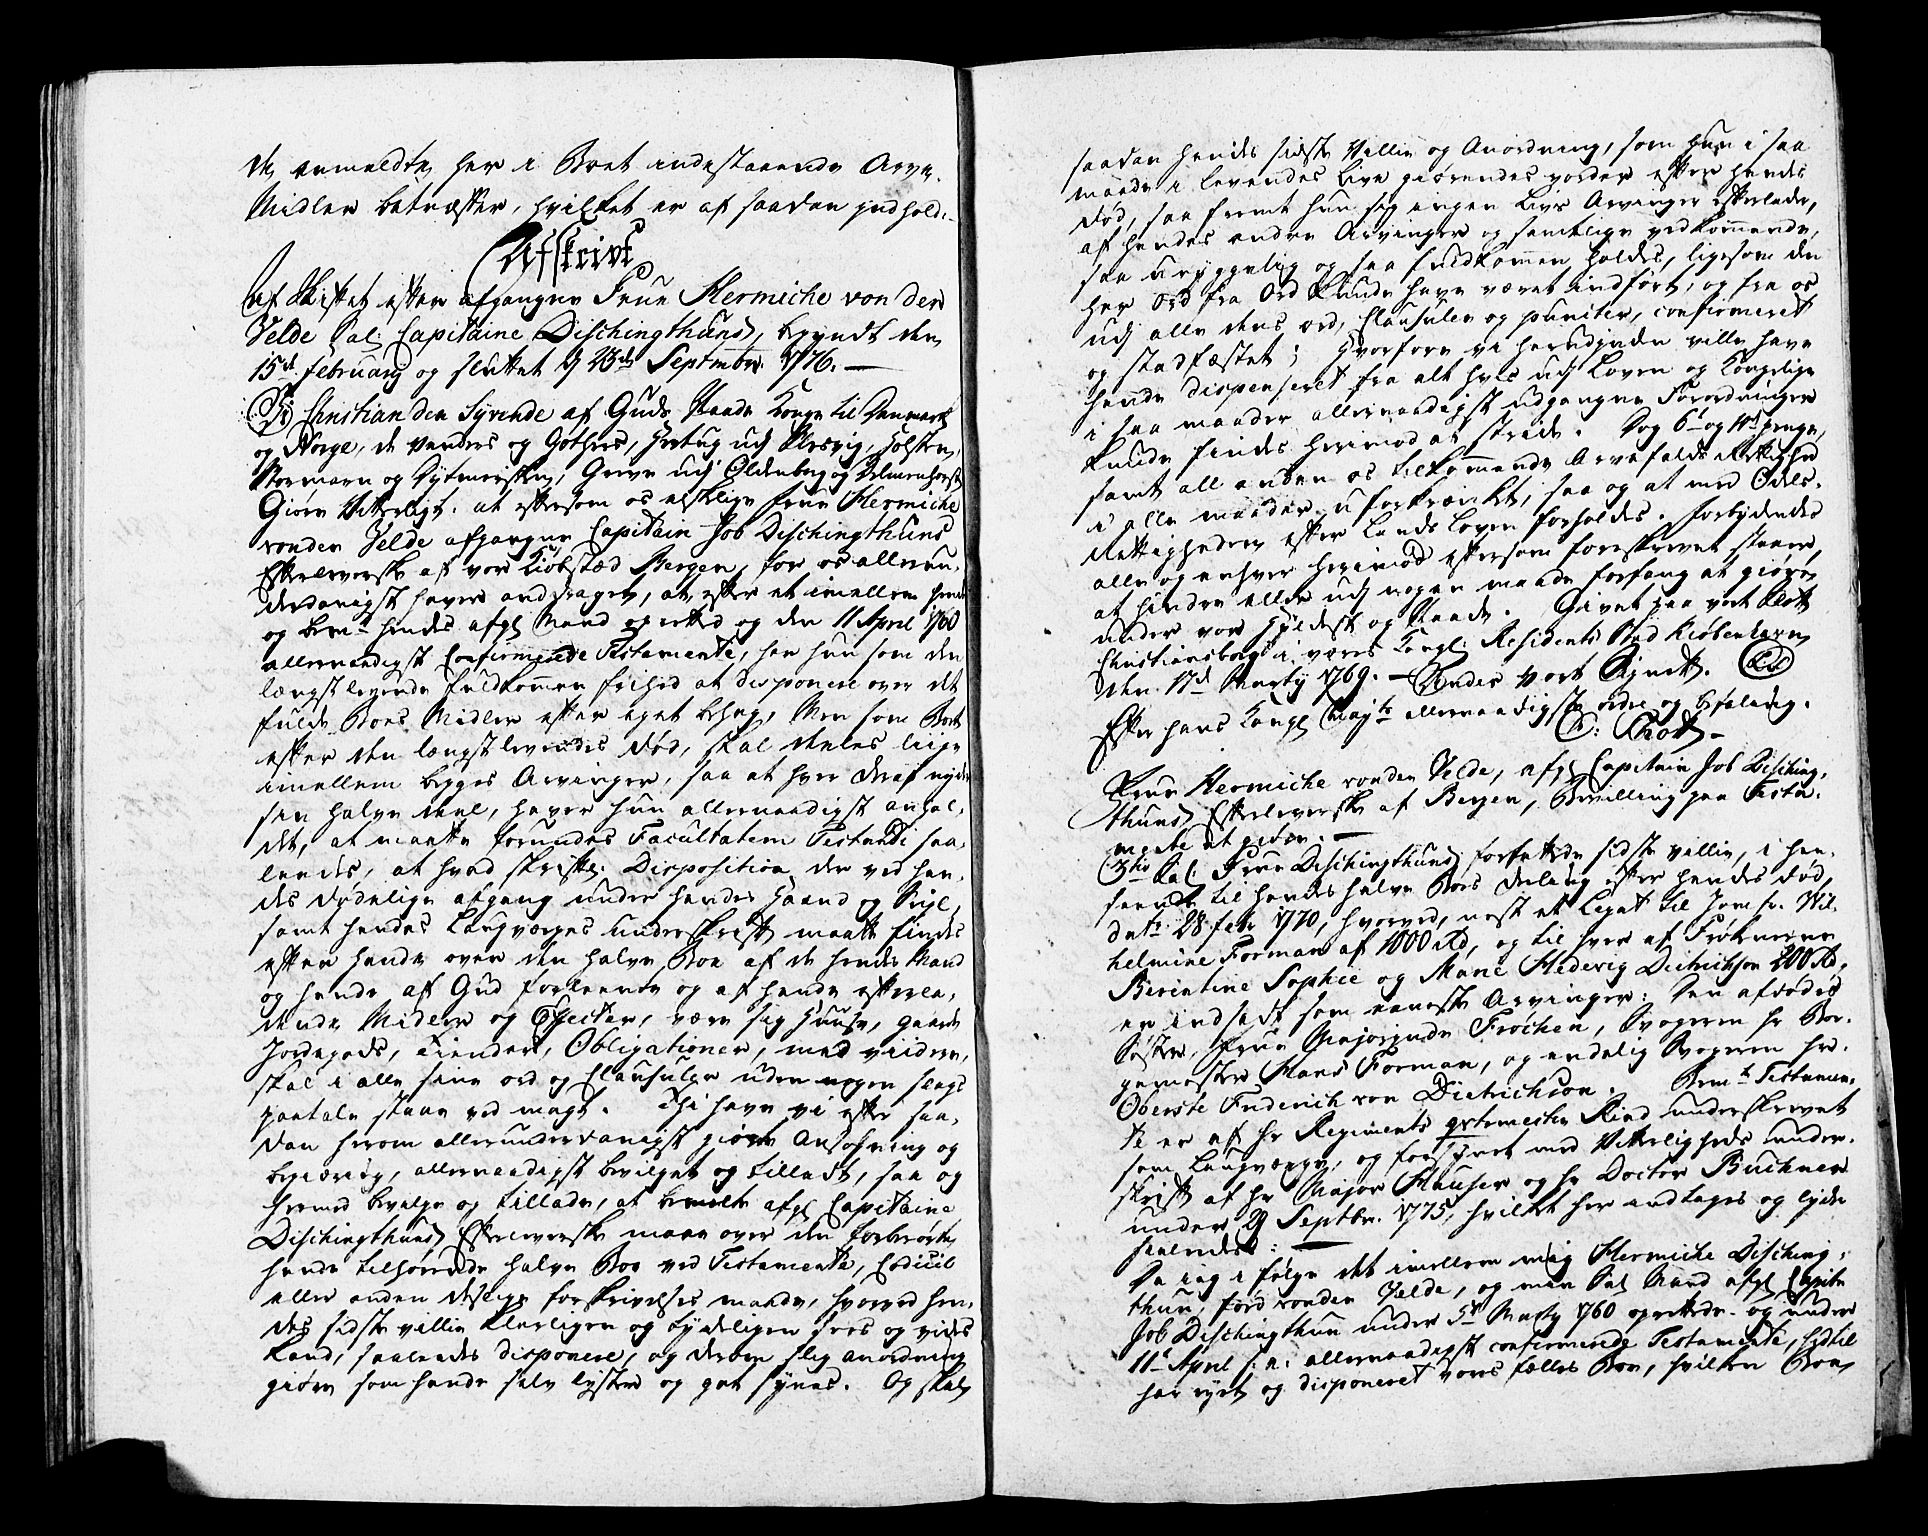 de anmeldte her i Boet indestaaende Arve-
Midler betræffer, hvilket er af saadan Indhold:
Afskrivt
af Skiftet efter afgangne Frue Hermiche von der
Velde Sal. Capitaine Dischingthuns, begyndt den
15de februarij og sluttet d 23de Septembr. 1776. —
Vi Christian den Syvende af Guds Naade Konge til Danmark
og Norge, de Venders og Gothers, Hertug udj Slesvig, Holsten,
Stormarn og Dytmersken, Greve udj Oldenborg og Delmenhorst
Giøre Vitterligt: at eftersom os elskelige Frue Hermiche
vonder Velde afgangne Capitain Job Dischingthuns
Efterleverske af vor Kiøbstæd Bergen, for os allerun-
derdanigst haver andraget, at efter et imellem hende
og bemte hendes afgl Mand opretted og den 11 April 1760
allernaadigst Confirmerede Testamente, har hun som den
længstlevende fuldkommen frihed at disponere over det
fulde Boes Midler efter eget behag, Men som Boet
efter den længstlevendes Død, skal deeles liige
imellem begges Arvinger, saa at hver deraf nyder
sin halve deel, haver hun allernaadigst anhol-
det, at maatte forundes Facultatem Testandi saa-
ledes, at hvad skriftl. Disposition, der ved hen-
des dødelige afgang under hendes Haand og Seigl,
samt hendes Laugværges underskrift maatte findes
efter hende over den halve Boe af de hendes Mand
og hende af Gud forleente og af hende efterla-
dende Midler og Effecter, være sig Huuse, Gaarde
Jordegods, Tiender, Obligationer, med viidere,
skal i alle sine ord og Clausuler uden nogen slags
paatale staae ved magt. Thi have vi efter saa-
dan herom allerunderdanigst giorte Ansøgning og
begiæring, allernaadigst bevilget og tilladt, saa og
hermed bevilge og tillade, at bemelte afgl Capitaine
Dischingthuns Efterleverske maae over den forberørte
hende tilhørende halve Boe ved Testamente, Codicil
eller anden deslige forskrivelses maade, hvorved hen-
des sidste villie klarligen og tydeligen sees og vides
kand, saaledes disponere, og derom slig anordning
giøre som hende selv lyster og got synes. Og skal
saadan hendes sidste Villie og Anordning, som hun i saa
maade i levendes Live giørendes vorder efter hendes
Død, saa fremt hun sig ingen Livs Arvinger efterlader,
af hendes andre Arvinger og samtlige vedkommende,
saa uryggelig og saa fuldkommen holdes, ligesom den
her Ord fra Ord kunde have været indført, og fra os
udj alle dens ord, Clausuler og puncter, confirmeret
og stadfæstet; Hvorfore vi herudjinden ville have
hende dispenseret fra alt hvis udj Loven og Kongelige
i saa maader allernaadigst udgangne Forordninger
kunde findes herimod at stride. Dog 6te og 10de penge,
samt all anden os tilkommende Arvefalds Rettighed
i alle maader uforkrænket, saa og at med Odels-
Rettigheden efter Lands Loven forholdes. Forbydendes
alle og enhver herimod eftersom foreskrevet staaer,
at hindre eller udj nogen maade forfang at giøre,
under vor Hyldest og Naade. Givet paa vort Slott
Christiansborg i vores Kongl. Residents Stad Kiøbenhavn
den 17de Martij 1769. — Under vort Signet. (LS)
Efter hans Kongl Mayts allernaadigste ordre og befaling.
O: Thott —
Frue Hermiche vonder Velde, afgl Capitain Job Disching-
thuns Efterleverske af Bergen, Bevilling paa Testa-
mente at giøre. —
3tio Sal. Frue Dischingthuns forfattede sidste villie, i hen-
seende til hendes halve Boes deeling efter hendes Død,
datr 28 febr 1770, hvorved, næst et Legat til Jomfr. Wil-
helmine Forman af 1000 Rd, og til hver af Frøknerne
Berentine Sophie og Marie Hedevig Dietrichson 200 Rd,
er indsadt som eeneste Arvinger: Den afdødes
Søster, Frue Majorjnde Frøchen, Svogeren hr Bor-
gemester Hans Forman, og endelig Svogeren hr
Oberste Friderich von Dietrichson. Bemte Testamen-
te er af hr Regiments qvtermester Rind underskrevet
som Laugværge, og forsynet med Vitterligheds under-
skrift af hr Major Hauser og hr Doctor Buchner
under 29 Septbr. 1775, hvilket her andtages og lyder
saaledes: —
Da jeg i følge det imellem mig Hermiche Disching-
thun, fød vonder Velde, og min Sal Mand afgl Capitn
Job Dischingthun under 5te Martij 1760 oprettede og under
11te April s: a: allernaadigst confirmerede Testamente, hidtil
har nydt og disponeret vores fælles Boe, hvilken Boe,